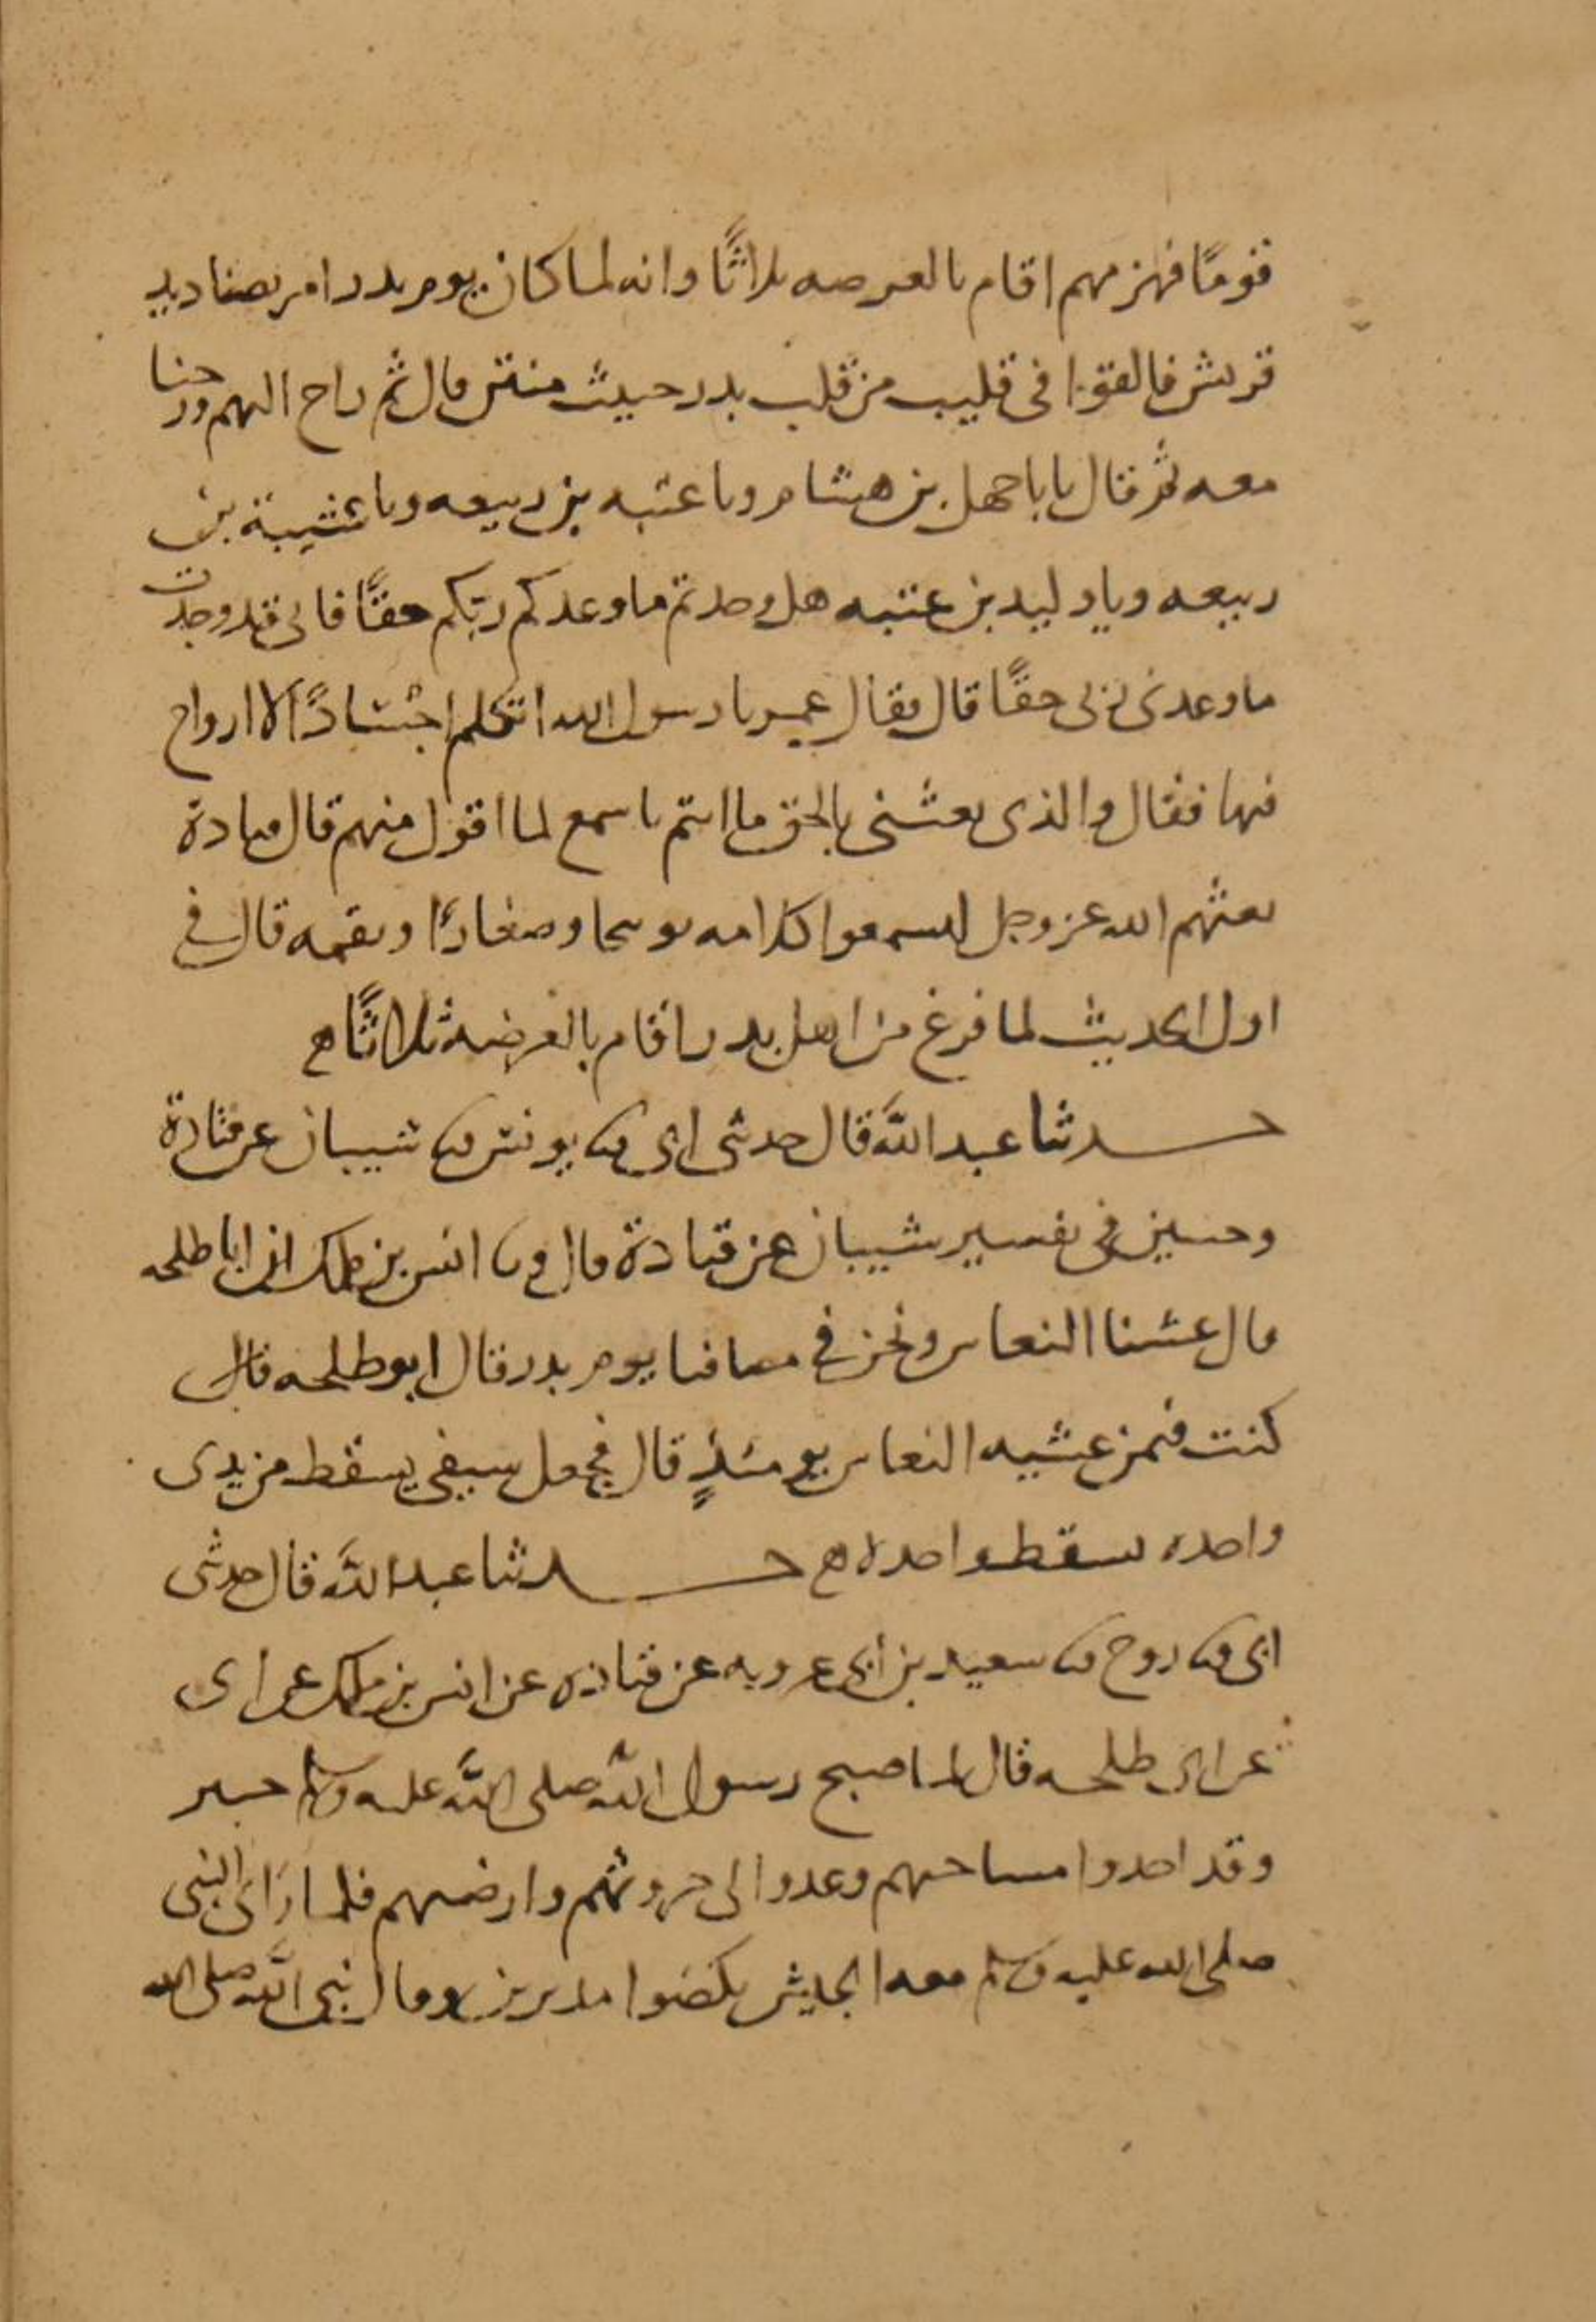 قومًا فهزمهم اقام بالعرصه ثلاثًا وانه لما كان يوم بدر امر بصناديد
قريش فالقوا فى قليب من قلب بدر خبيث منتن قال ثم راح اليهم ورحنا
معه ثم قال يا با جهل بن هشام ويا عتبه بن ربيعه ويا شيبة بن
ربيعه ويا وليد بن عتبه هل وجدتم ما وعدكم ربّكم حقًّا فانى قد وجدت
ما وعدنى ربى حقًا قال فقال عمر يا رسول الله اتكلم اجسادًا لا ارواح
فيها فقال والذى بعثنى بالحق ما انتم باسمع لما اقول منهم قال قتادة
بعثهم الله عز وجل ليسمعوا كلامه توبيخا وصغارًا ونقمه قال فى
اول الحديث لما فرغ من اهل بدر اقام بالعرصه ثلاثًا ھ
حدثنا عبد الله قال حدثنى ابى ثنا يونس ثنا شيبان عن قتادة
وحسين فى تفسير شيبان عن قتادة قال وثنا انس بن ملك ان ابا طلحه
قال غشينا النعاس ونحن فى مصافنا يوم بدر قال ابو طلحه قال
كنت فيمن غشيه النعاس يومئذٍ قال فجعل سيفى يسقط من يدى
واخذه يسقط واخذه ھ حدثنا عبد الله قال حدثنى
ابى ثنا روح ثنا سعيد بن ابى عروبه عن قتاده عن انس بن ملك عن ابى
عن ابى طلحه قال لما صبح رسول الله صلى الله عليه وسلم خيبر
وقد اخذوا مساحيهم وغدوا الى حروثهم وارضيهم فلما رَاى النبى
صلى الله عليه وسلم معه الجيش نكصوا مدبرين وقال نبى الله صلى الله